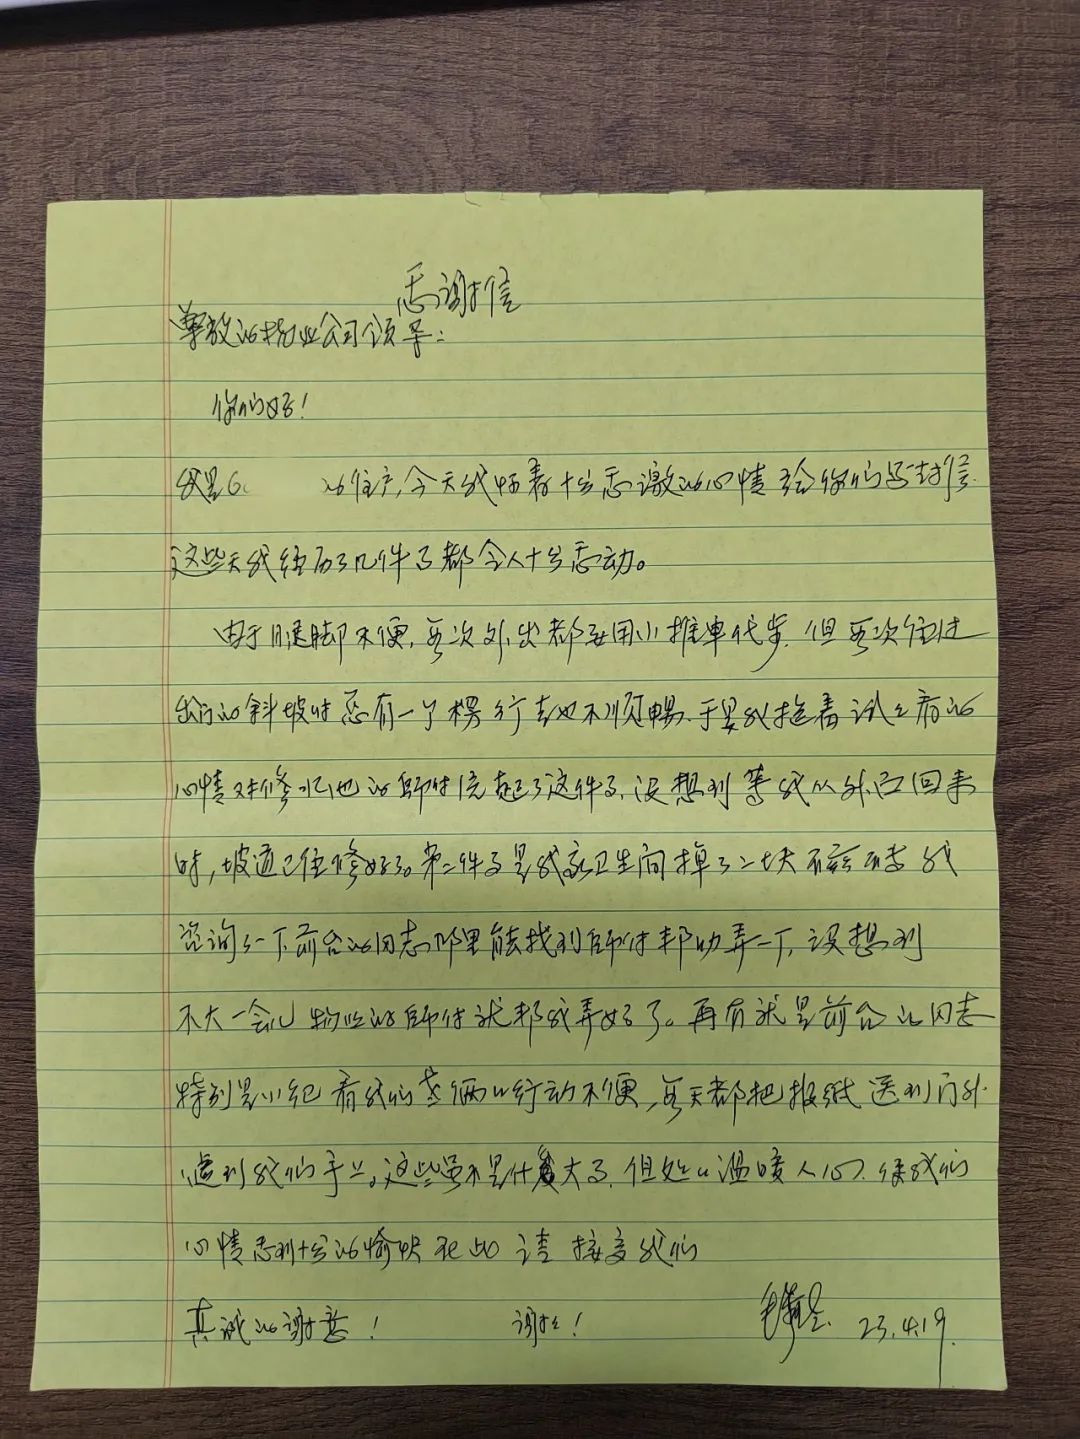 感谢信
尊敬的物业公司领导:
你们好!
我是G 的住户,今天我怀着十分感激的心情给你们写封信.
这些天我经历了几件事都令人十分感动。
由于腿脚不便,每次外出都要用小推车代步.但每次往过
的斜坡时总有一个楞行走也不顺畅.于是我抱着试试看的
心情对修水池的师付说起了这件事,没想到等我从外面回来
时,坡道已经修好了。第二件事是我家卫生间掉了二块 我
咨询了一下前台的同志哪里能找到师付帮助弄一下,没想到
不大一会儿物业的师付就帮我弄好了。再有就是前台的同志
特别是小纪看我们老俩口行动不便,每天都把报纸送到门外
递到我们手上。这些虽不是什么大事.但处处温暖人心.使我们
心情感到十分的愉快在此请接受我们
真诚的谢意! 谢谢!
23.4.19.